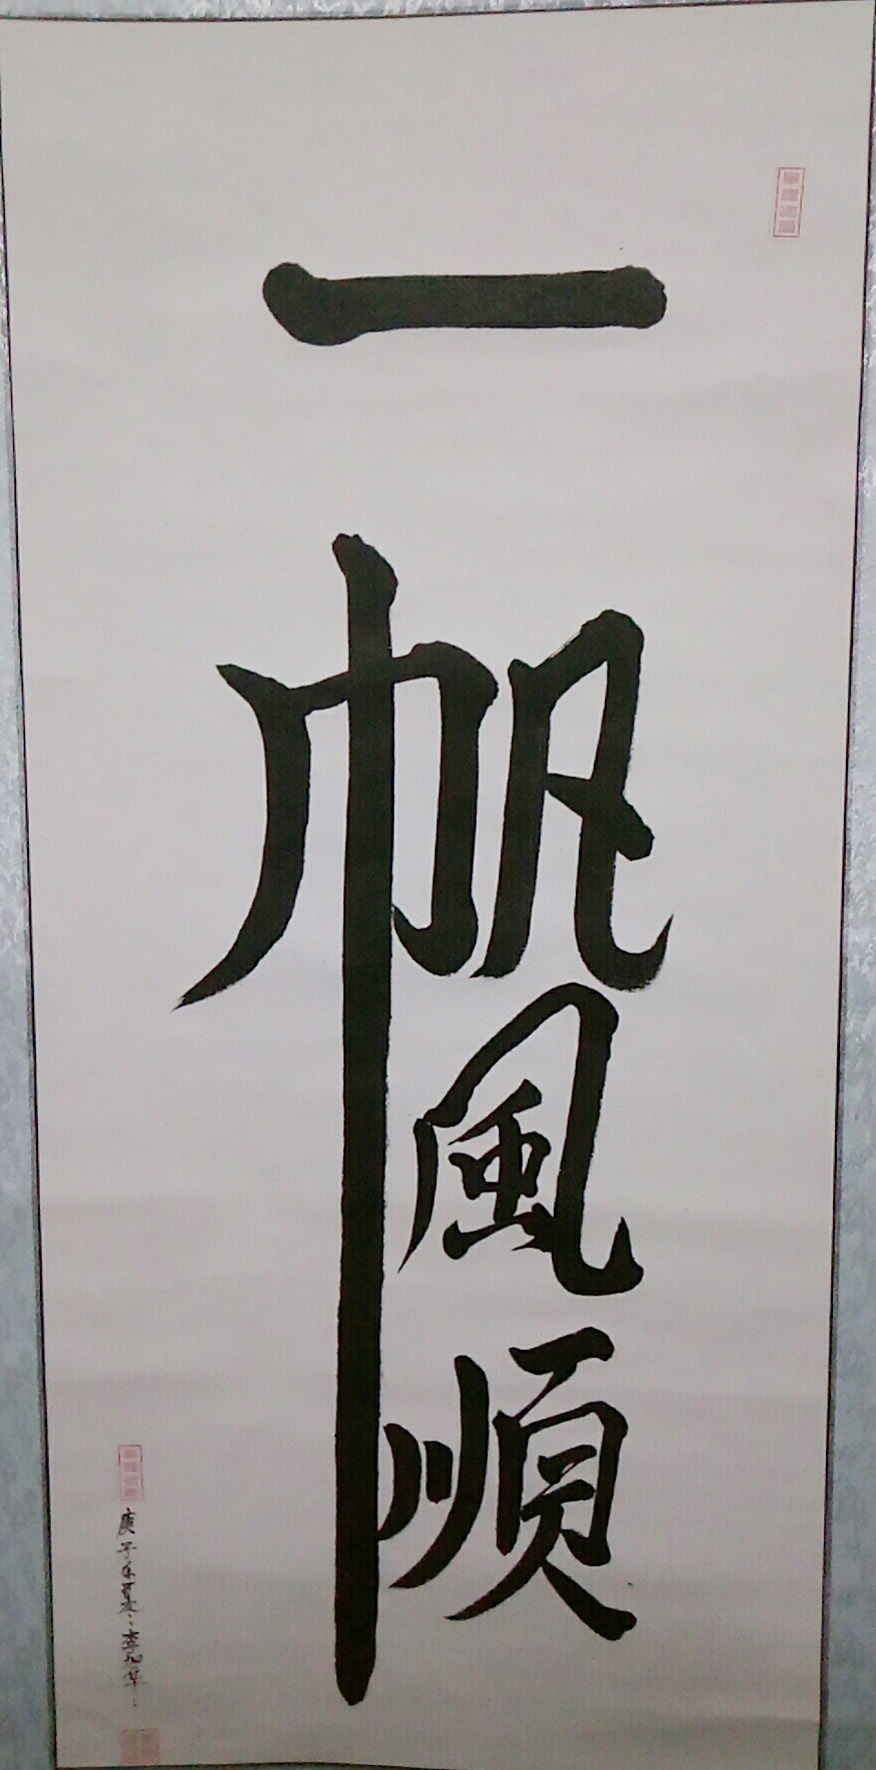 一帆風順
庚子年夏